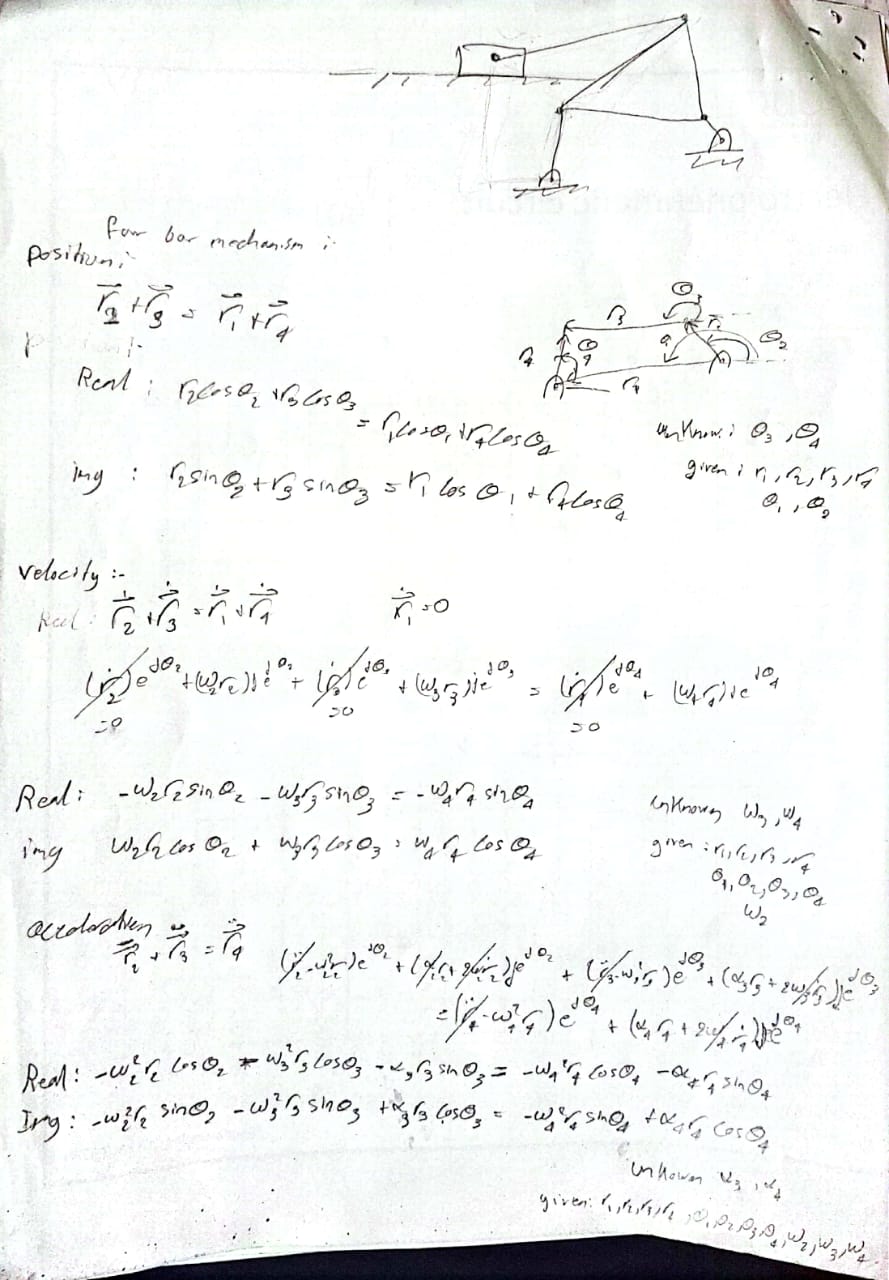 four bar mechanism :-
Position :-
r⃗₂ + r⃗₃ = r⃗₁ + r⃗₄
Real : r₂cosθ₂ + r₃cosθ₃
= r₁cosθ₁ + r₄cosθ₄
img : r₂sinθ₂ + r₃sinθ₃ = r₁cosθ₁ + r₄cosθ₄
r₃
θ₂
r₄
unknown : θ₃, θ₄
given : r₁, r₂, r₃, r₄
θ₁, θ₂
velocity :-
Real : ṙ⃗₂ + ṙ⃗₃ = ṙ⃗₁ + ṙ⃗₄
ṙ⃗₁ = 0
(ṙ₂)e^jθ₂ + (ω₂r₂)je^jθ₂ + (ṙ₃)e^jθ₃ + (ω₃r₃)je^jθ₃ = (ṙ₄)e^jθ₄ + (ω₄r₄)je^jθ₄
=0 =0 =0
Real : -ω₂r₂sinθ₂ - ω₃r₃sinθ₃ = -ω₄r₄sinθ₄
img ω₂r₂cosθ₂ + ω₃r₃cosθ₃ = ω₄r₄cosθ₄
unknown ω₃, ω₄
given : r₁, r₂, r₃, r₄
θ₁, θ₂, θ₃, θ₄
ω₂
acceleration
r̈⃗₂ + r̈⃗₃ = r̈⃗₄
(r̈₂-ω₂²r₂)e^jθ₂ + (α₂r₂+2ω₂ṙ₂)je^jθ₂ + (r̈₃-ω₃²r₃)e^jθ₃ + (α₃r₃+2ω₃ṙ₃)je^jθ₃
= (r̈₄-ω₄²r₄)e^jθ₄ + (α₄r₄+2ω₄ṙ₄)je^jθ₄
Real : -ω₂²r₂cosθ₂ - ω₃²r₃cosθ₃ - α₃r₃sinθ₃ = -ω₄²r₄cosθ₄ - α₄r₄sinθ₄
Img : -ω₂²r₂sinθ₂ - ω₃²r₃sinθ₃ + α₃r₃cosθ₃ = -ω₄²r₄sinθ₄ + α₄r₄cosθ₄
unknown α₃, α₄
given : r₁, r₂, r₃, r₄, θ₁, θ₂, θ₃, θ₄, ω₂, ω₃, ω₄